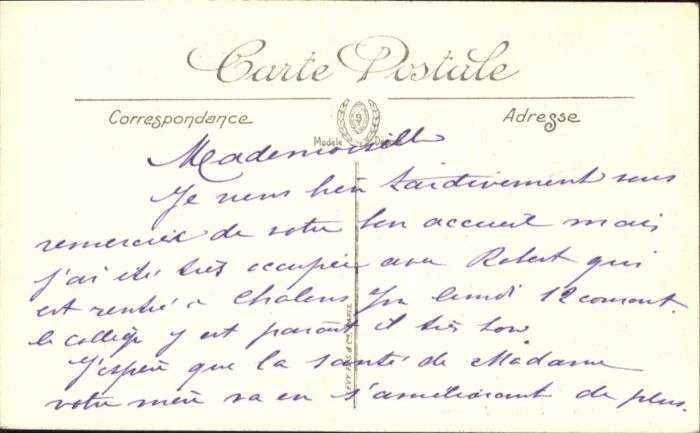 Carte Postale
Correspondance
Adresse
9
Modèle
Mademoiselle
Je viens bien tardivement vous
remercier de votre bon accueil mais
j'ai été très occupée avec Robert qui
est rentré à Chalons lundi 12 courant.
le collège y est parait il très bon
J'espère que la santé de Madame
votre mère va en s'améliorant de plus.
LEVY FILS & Cie PARIS